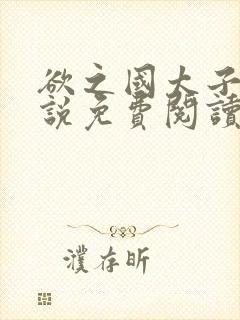 欲之國大子
說免費閱讀
濮存昕